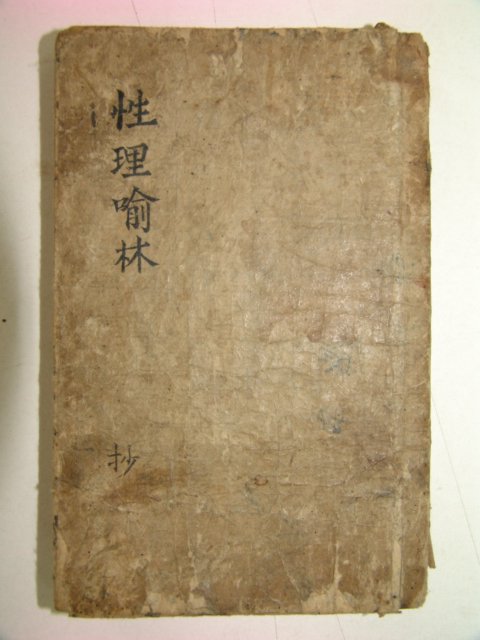 性理喻林
抄